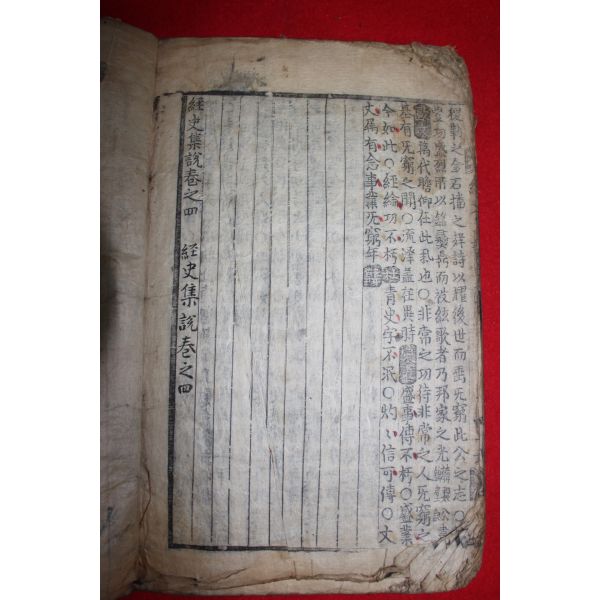 稷勒之金石播之聲詩以耀後世而垂无窮此公之志○
豊功盛烈所以銘彝鼎而被絃歌者乃邦家之光
萬代瞻仰在此也○非常之功待非常之人无窮之
基有无窮之聞○流泽盖在異時盛事傳不朽○盛業
今如此○經綸功不朽青史字不泯○灼〻信可傳○文
有合事業无窮年
經史集說卷之四 經史集說卷之四